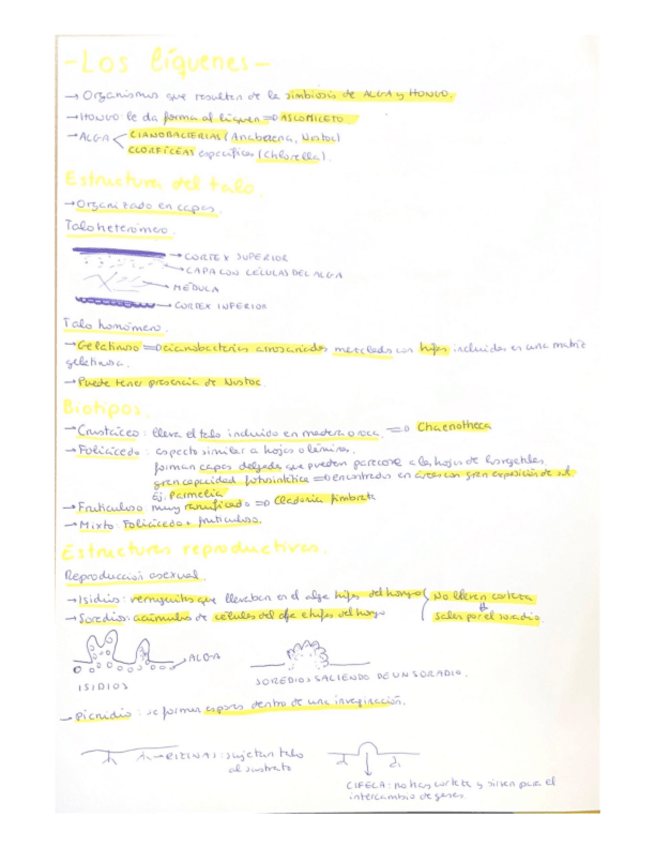 -Los líquenes-
→ Organismos que resultan de la simbiosis de ALGA y HONGO.
→ HONGO: le da forma al liquen => ASCOMICETO
→ ALGA < CIANOBACTERIAS (Anabaena, Nostoc)
CLOROFÍCEAS específicas (Chlorella).
Estructura del talo.
→ Organizado en capas.
Talo heterómero.
→ CORTEX SUPERIOR
→ CAPA CON CÉLULAS DEL ALGA
→ MÉDULA
→ CORTEX INFERIOR
Talo homómero.
→ Gelatinoso => cianobacterias arrosariadas mezcladas con hifas incluidas en una matriz
gelatinosa.
→ Puede tener presencia de Nostoc.
Biotipos.
→ Crustáceo: lleva el talo incluido en madera o roca. => Chaenotheca
→ Foliáceo: aspecto similar a hojas o láminas.
forman capas delgadas que pueden parecerse a las hojas de los vegetales
gran capacidad fotosintética => encontrados en áreas con gran exposición de sol.
Ej. Parmelia
→ Fruticuloso muy ramificado => Cladonia fimbriata
→ Mixto: Foliáceo + fruticuloso.
Estructuras reproductivas.
Reproducción asexual.
→ Isidios: verruguitas que llevaban en el alga hifas del hongo
→ Soredios: acúmulos de células del alga e hifas del hongo
No llevan corteza
Salen por el soradio.
→ ALGA
ISIDIOS
SOREDIOS SALIENDO DE UN SORADIO.
→ Picnidio: se forman esporas dentro de una invaginación.
→ RIZINAS: sujetan talo
al sustrato
CIFELA: no hay corteza y sirven para el
intercambio de gases